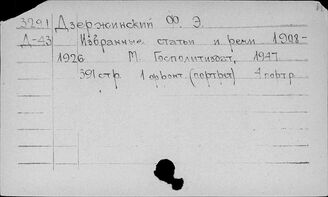 3291 Дзержинский Ф. Э.
Д-43 Избранные статьи и речи 1908-
1926 М. Госполитиздат, 1947
391 стр. 1 фронт. (портрет) 4 портр